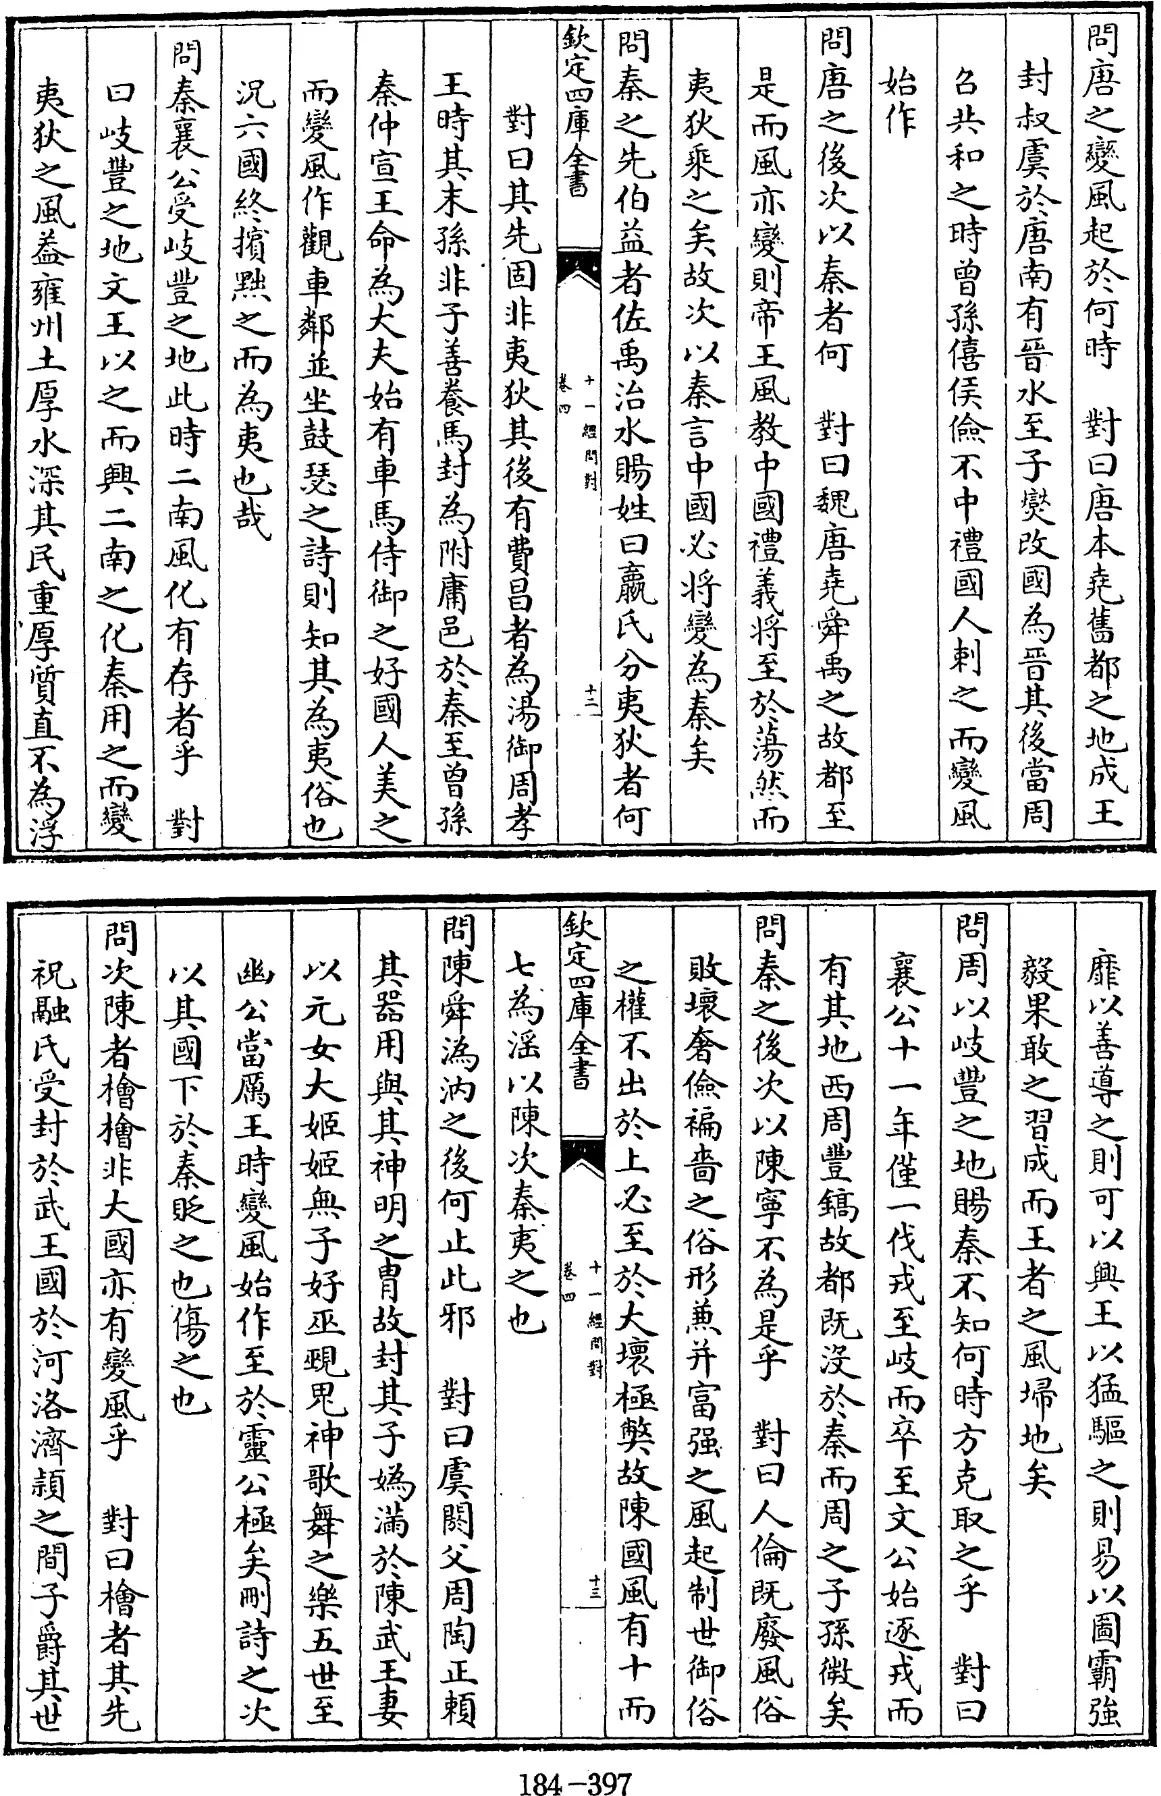 問唐之變風起於何時　對曰唐本堯舊都之地成王
封叔虞於唐南有晉水至子燮改國為晉其後當周
召共和之時曾孫僖侯儉不中禮國人刺之而變風
始作
問唐之後次以秦者何　對曰魏唐堯舜禹之故都至
是而風亦變則帝王風教中國禮義將至於蕩然而
夷狄乘之矣故次以秦言中國必將變為秦矣
問秦之先伯益者佐禹治水賜姓曰嬴氏分夷狄者何
欽定四庫全書
卷四
十一經問對
十二
對曰其先固非夷狄其後有費昌者為湯御周孝
王時其末孫非子善養馬封為附庸邑於秦至曾孫
秦仲宣王命為大夫始有車馬侍御之好國人美之
而變風作觀車鄰並坐鼓瑟之詩則知其為夷俗也
況六國終擯黜之而為夷也哉
問秦襄公受岐豐之地此時二南風化有存者乎　對
曰岐豐之地文王以之而興二南之化秦用之而變
夷狄之風蓋雍州土厚水深其民重厚質直不為浮
靡以善導之則可以興王以猛驅之則易以圖霸強
毅果敢之習成而王者之風埽地矣
問周以岐豐之地賜秦不知何時方克取之乎　對曰
襄公十一年僅一伐戎至岐而卒至文公始逐戎而
有其地西周豐鎬故都既沒於秦而周之子孫微矣
問秦之後次以陳寧不為是乎　對曰人倫既廢風俗
敗壞奢儉褊嗇之俗形兼并富强之風起制世御俗
之權不出於上必至於大壞極弊故陳國風有十而
欽定四庫全書
卷四
十一經問對
十三
七為滛以陳次秦夷之也
問陳舜溈汭之後何止此邪　對曰虞閼父周陶正賴
其器用與其神明之胄故封其子媯滿於陳武王妻
以元女大姬姬無子好巫覡鬼神歌舞之樂五世至
幽公當厲王時變風始作至於靈公極矣刪詩之次
以其國下於秦貶之也傷之也
問次陳者檜檜非大國亦有變風乎　對曰檜者其先
祝融氏受封於武王國於河洛濟頴之間子爵其世
184-397